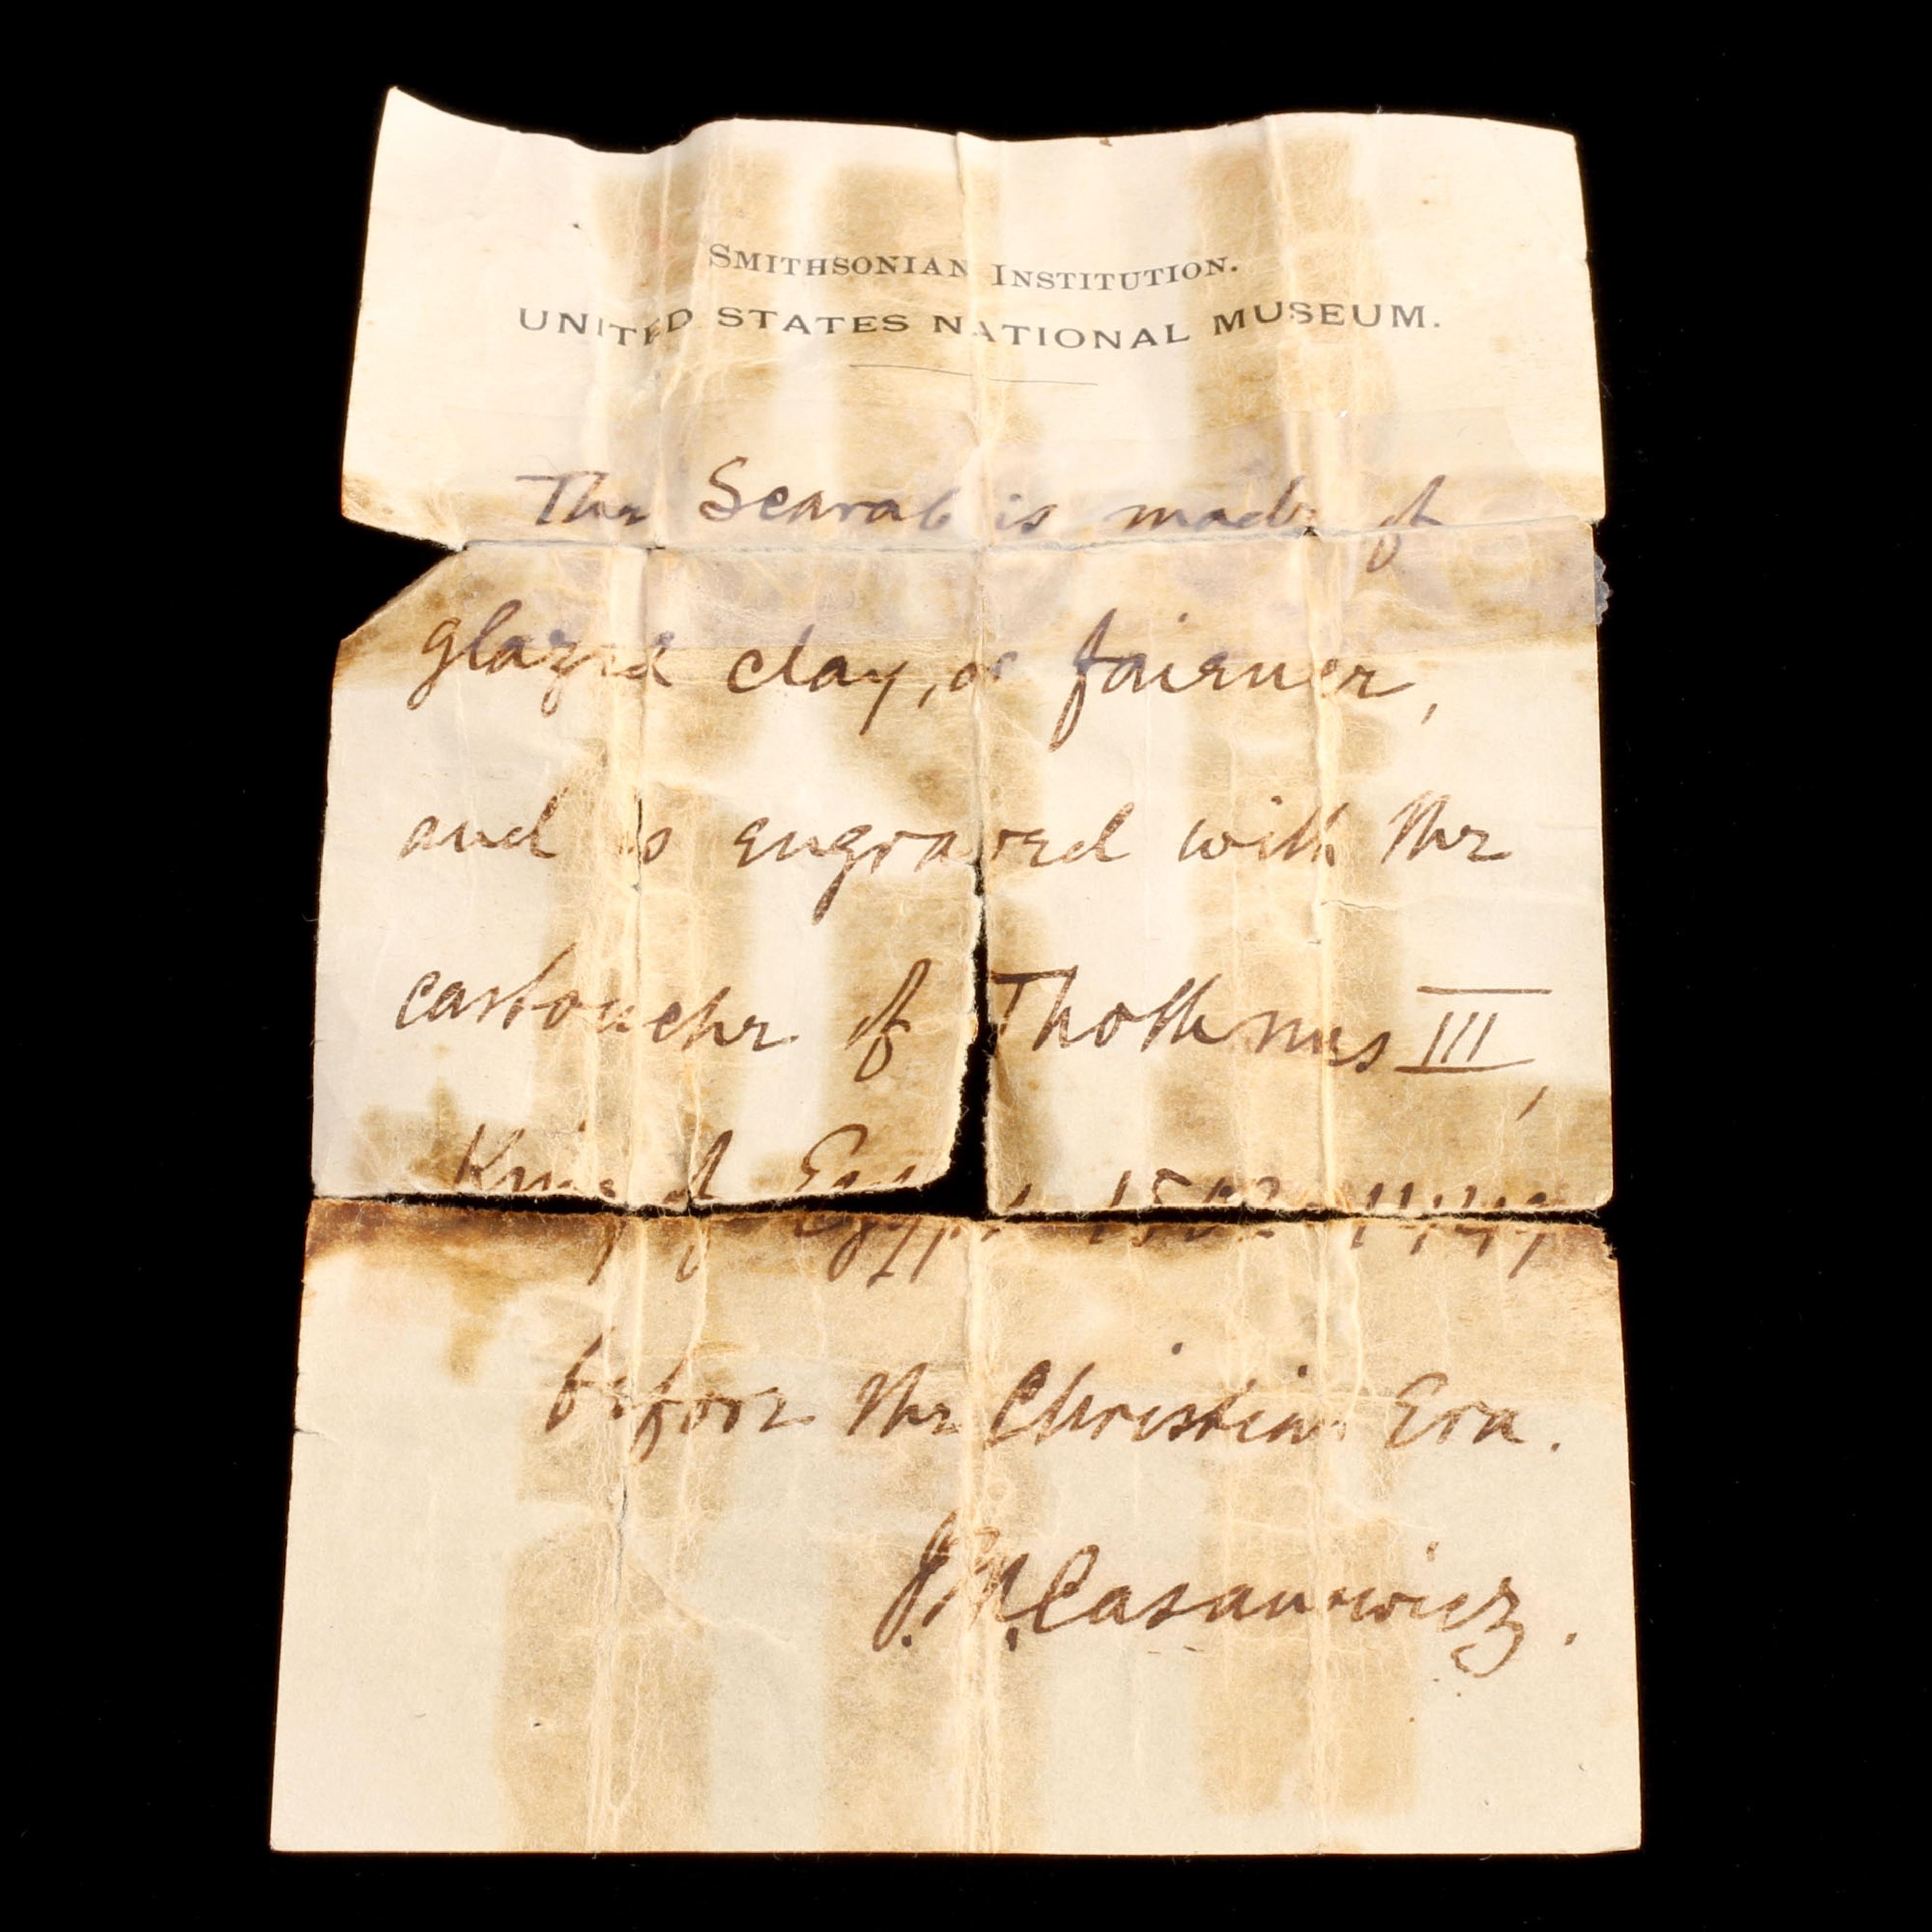 SMITHSONIAN INSTITUTION.
UNITED STATES NATIONAL MUSEUM.
The Scarab is made of
glazed clay, or faience,
and is engraved with the
cartouche of Thothmes III,
King of Egypt 1502
before the Christian Era.
I. M. Casanowicz.